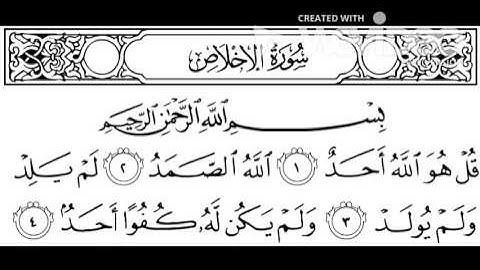 CREATED WITH
سُورَةُ الإِخْلَاصِ
بِسْمِ اللَّهِ الرَّحْمَٰنِ الرَّحِيمِ
قُلْ هُوَ اللَّهُ أَحَدٌ ١ اللَّهُ الصَّمَدُ ٢ لَمْ يَلِدْ
وَلَمْ يُولَدْ ٣ وَلَمْ يَكُن لَّهُ كُفُوًا أَحَدٌ ٤